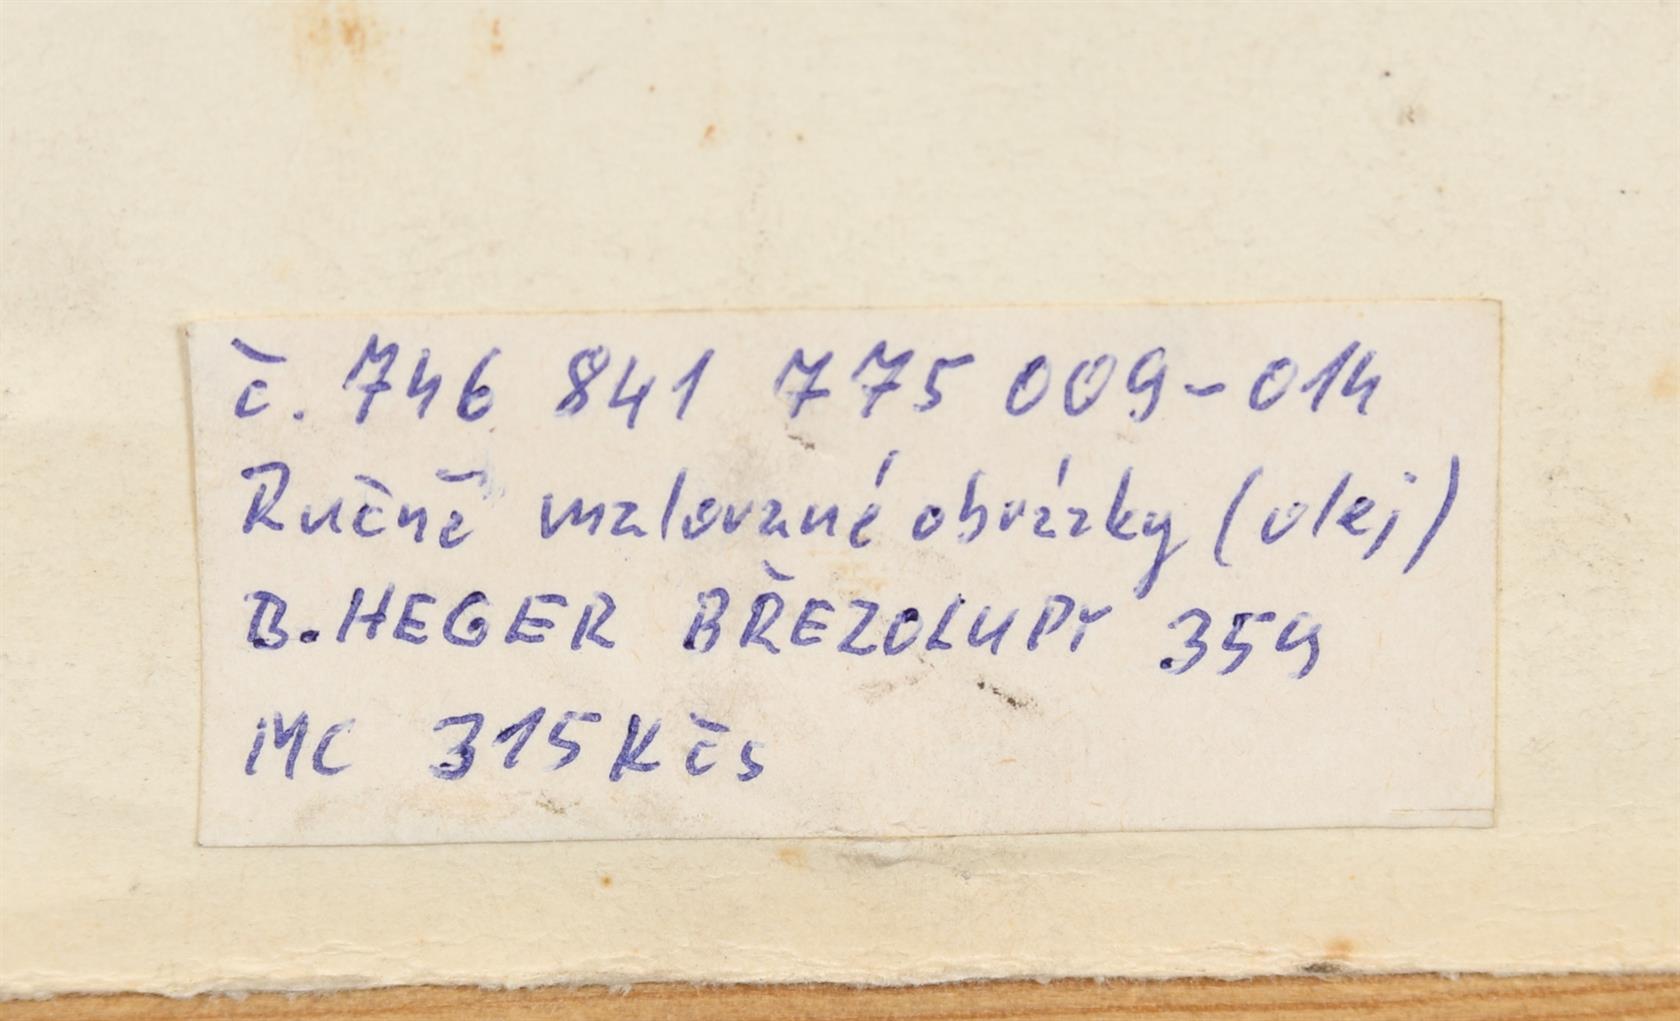 č. 746 841 775 009-014
Ručně malované obrázky (olej)
B. HEGER BŘEZOLUPY 359
MC 315 Kčs